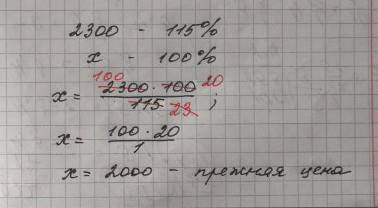 2300 - 115%
x - 100%
100
x = 2300 · 100 20
115 23 ;
x = 100 · 20
1
x = 2000 - прежная цена